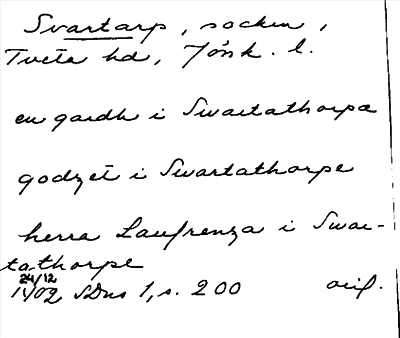 Svartarp, socken,
Tveta hd, Jönk. l.
en gardh i Swartathorpa
godzet i Swartathorpe
herra Laufrenza i Swar-
tathorpe
24/12
1402 SDns 1, s. 200 orig.